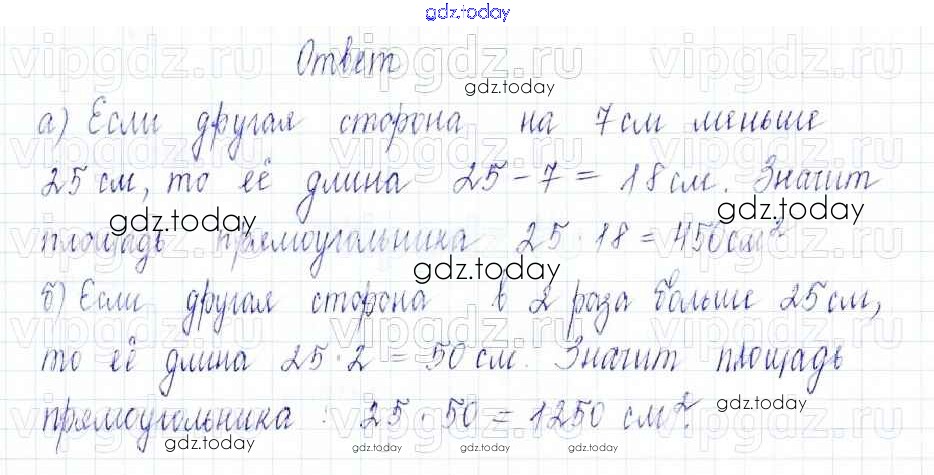 gdz.today
Ответ
а) Если другая сторона на 7 см меньше
25 см, то её длина 25 - 7 = 18 см. Значит
площадь прямоугольника 25 · 18 = 450 см²
б) Если другая сторона в 2 раза больше 25 см,
то её длина 25 · 2 = 50 см. Значит площадь
прямоугольника : 25 · 50 = 1250 см².
vipgdz.ru vipgdz.ru vipgdz.ru
gdz.today
gdz.today gdz.today
gdz.today
gdz.today
gdz.today gdz.today gdz.today